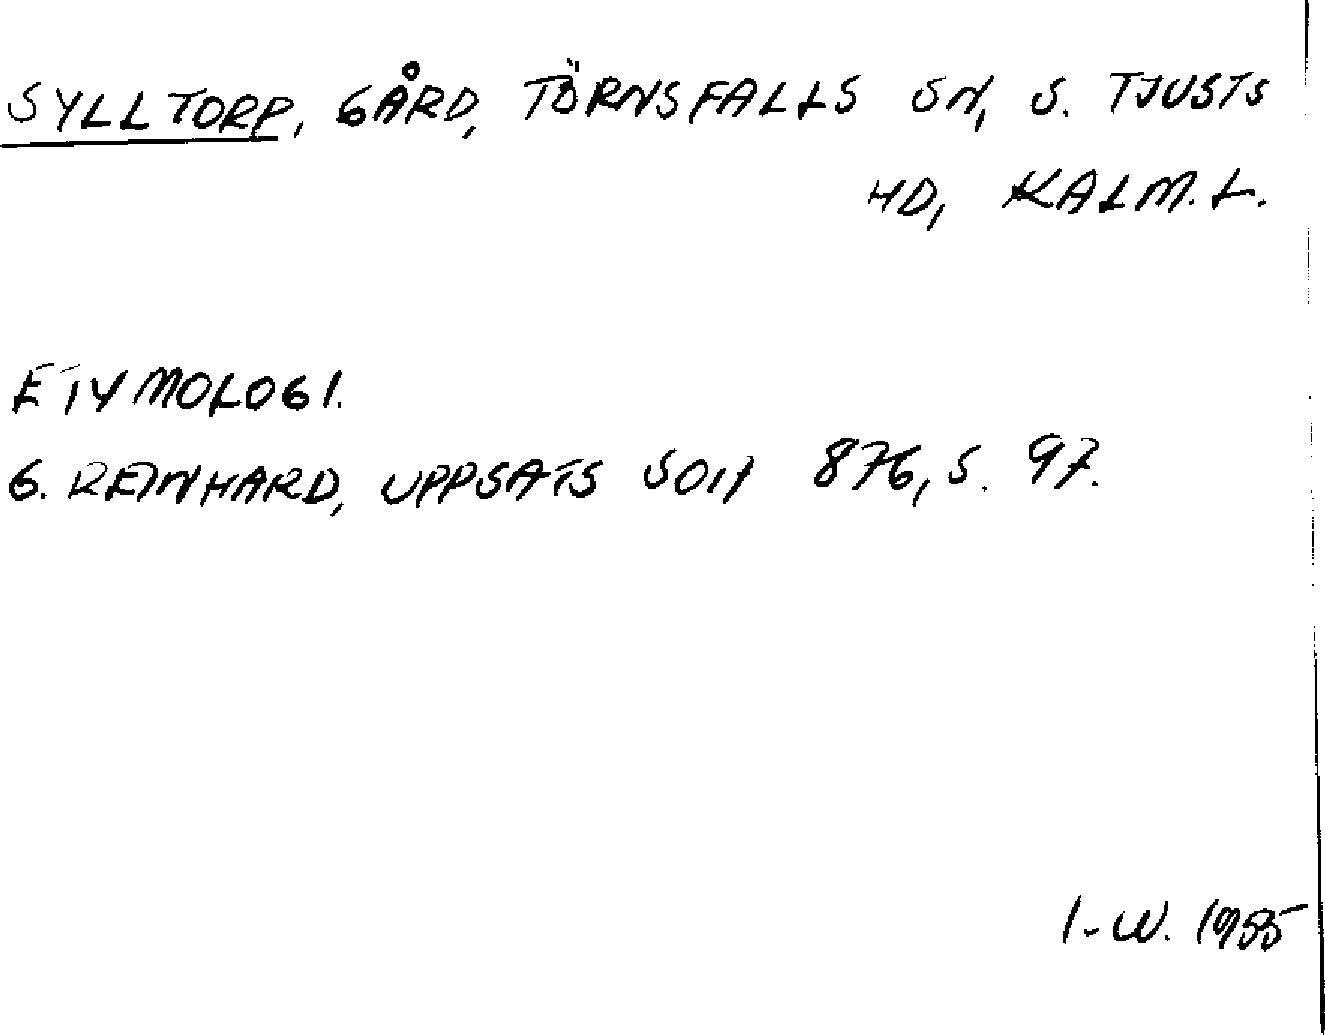 SYLLTORP, GÅRD, TÖRNSFALLS SN, S. TJUSTS
HD, KALM. L.
ETYMOLOGI.
G. REINHARD, UPPSATS SOH 876, S. 97.
I-W. 1955